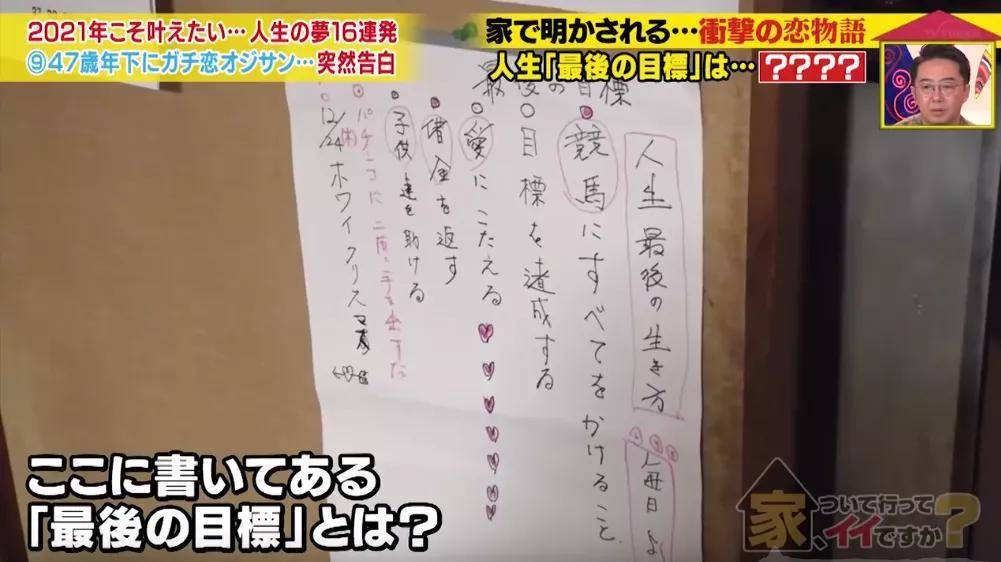 2021年こそ叶えたい…人生の夢16連発
⑨47歳年下にガチ恋オジサン…突然告白
家で明かされる…衝撃の恋物語
人生「最後の目標」は…????
人生最後の生き方
毎日
競馬にすべてをかけること
目標を達成する
愛にこたえる
借金を返す
子供達を助ける
パチンコに二度と手を出すな
12/24 ホワイクリスマス
ここに書いてある
「最後の目標」とは?
家、ついて行ってイイですか?